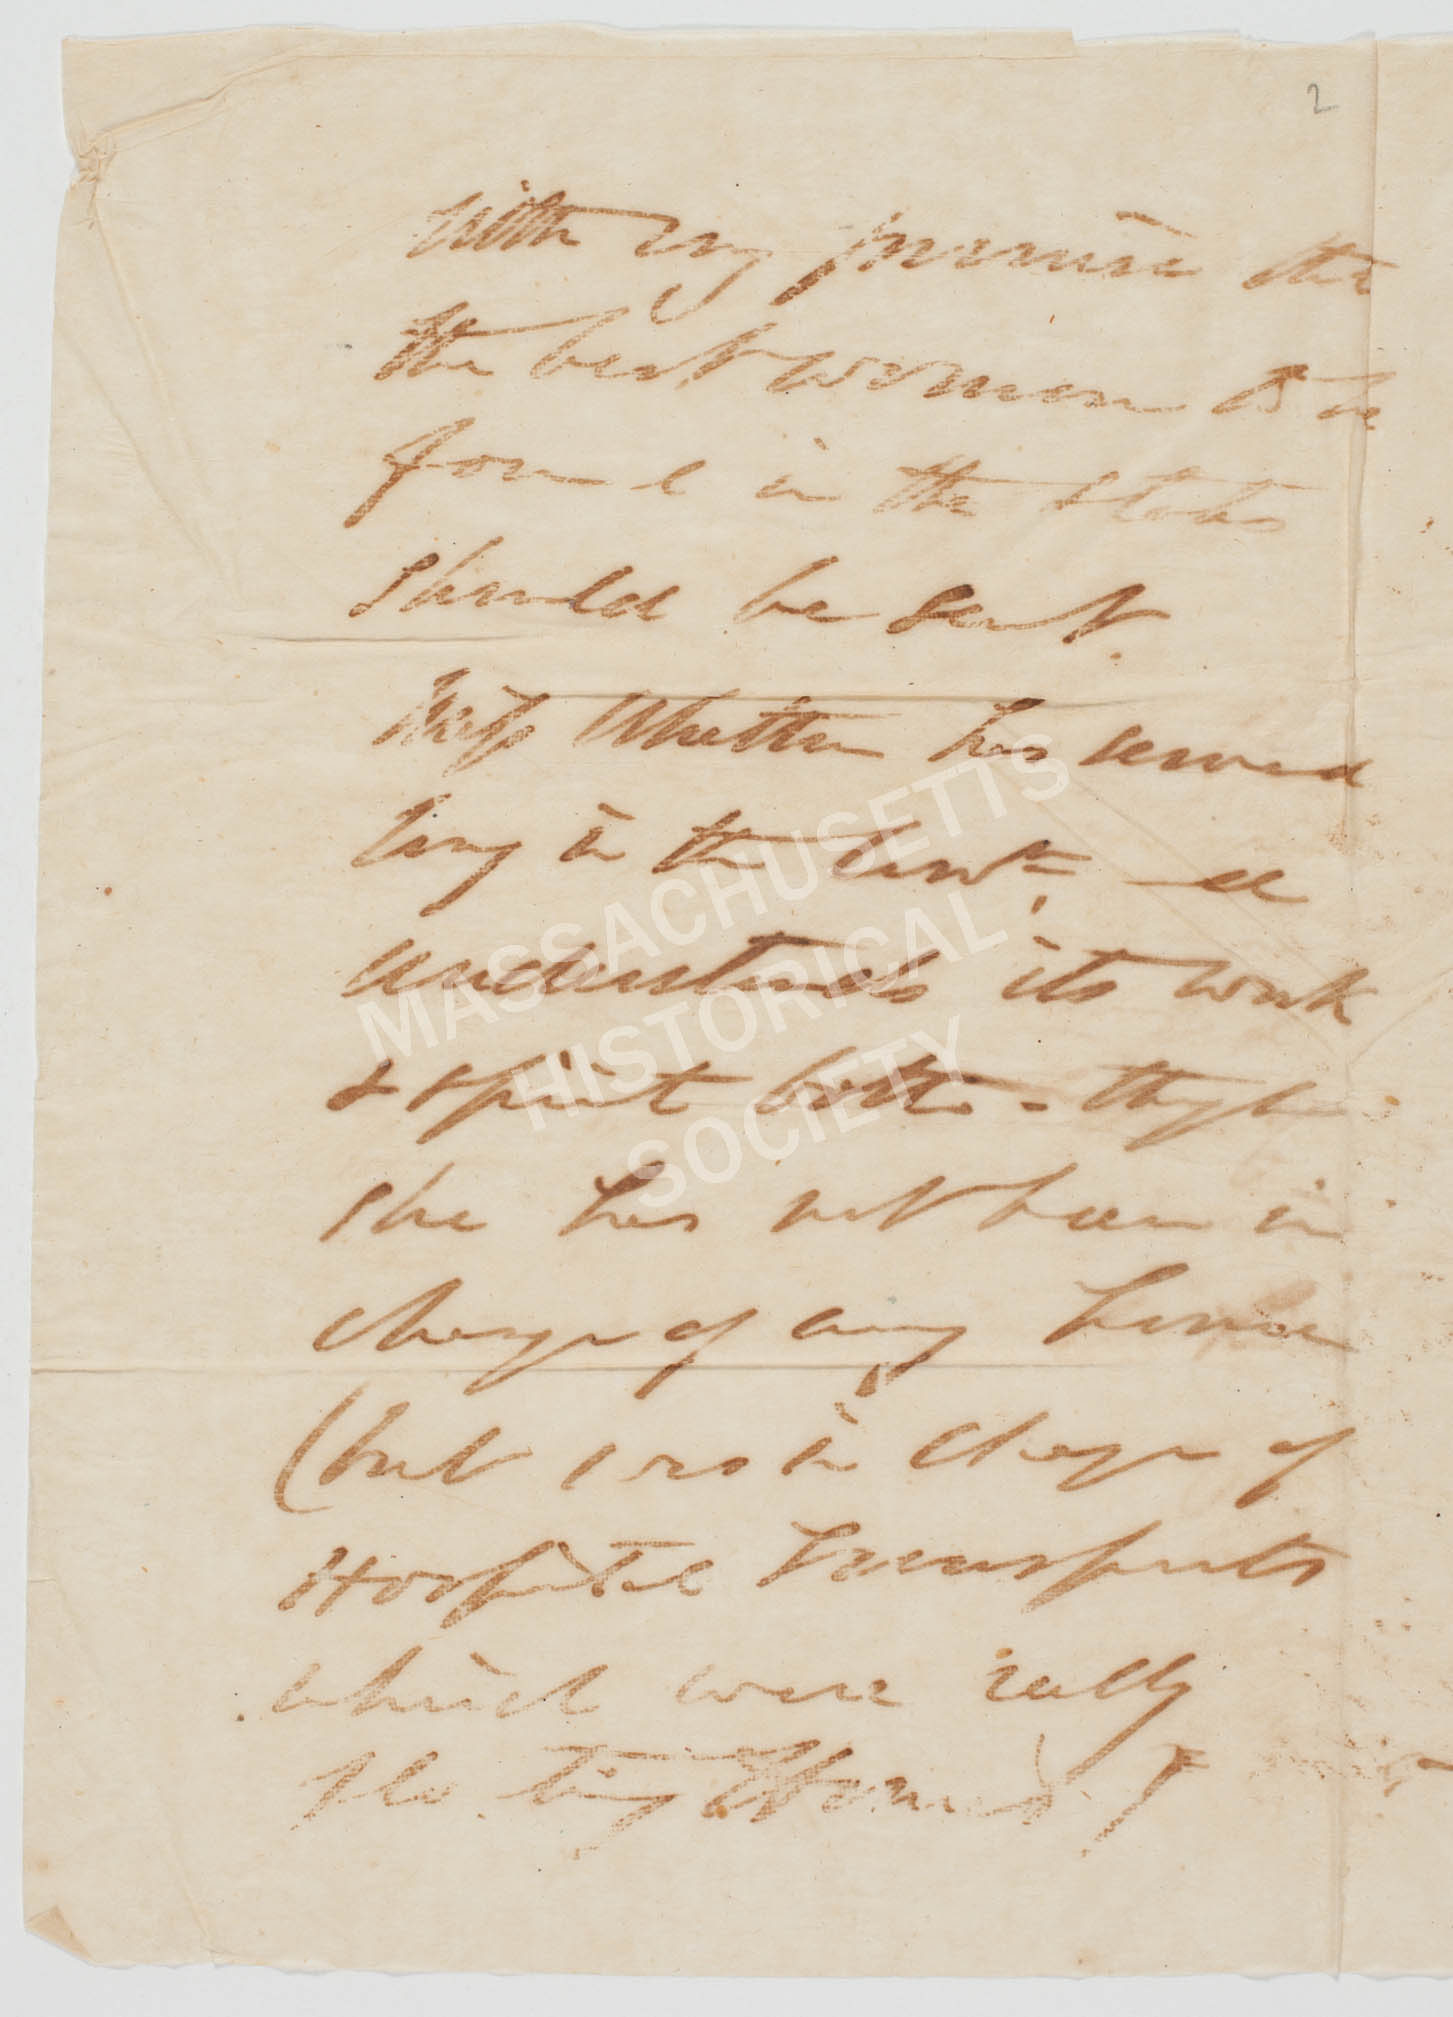 2
With my promise that
the best women to be
found in the States
should be sent.
Miss Whetten has served
long in the serv^ce, &
understands its work
& spirit both - though
she has not been in
charge of any home
(but was in charge of
Hospital Transports
which were really
floating Homes.)
MASSACHUSETTS
HISTORICAL
SOCIETY